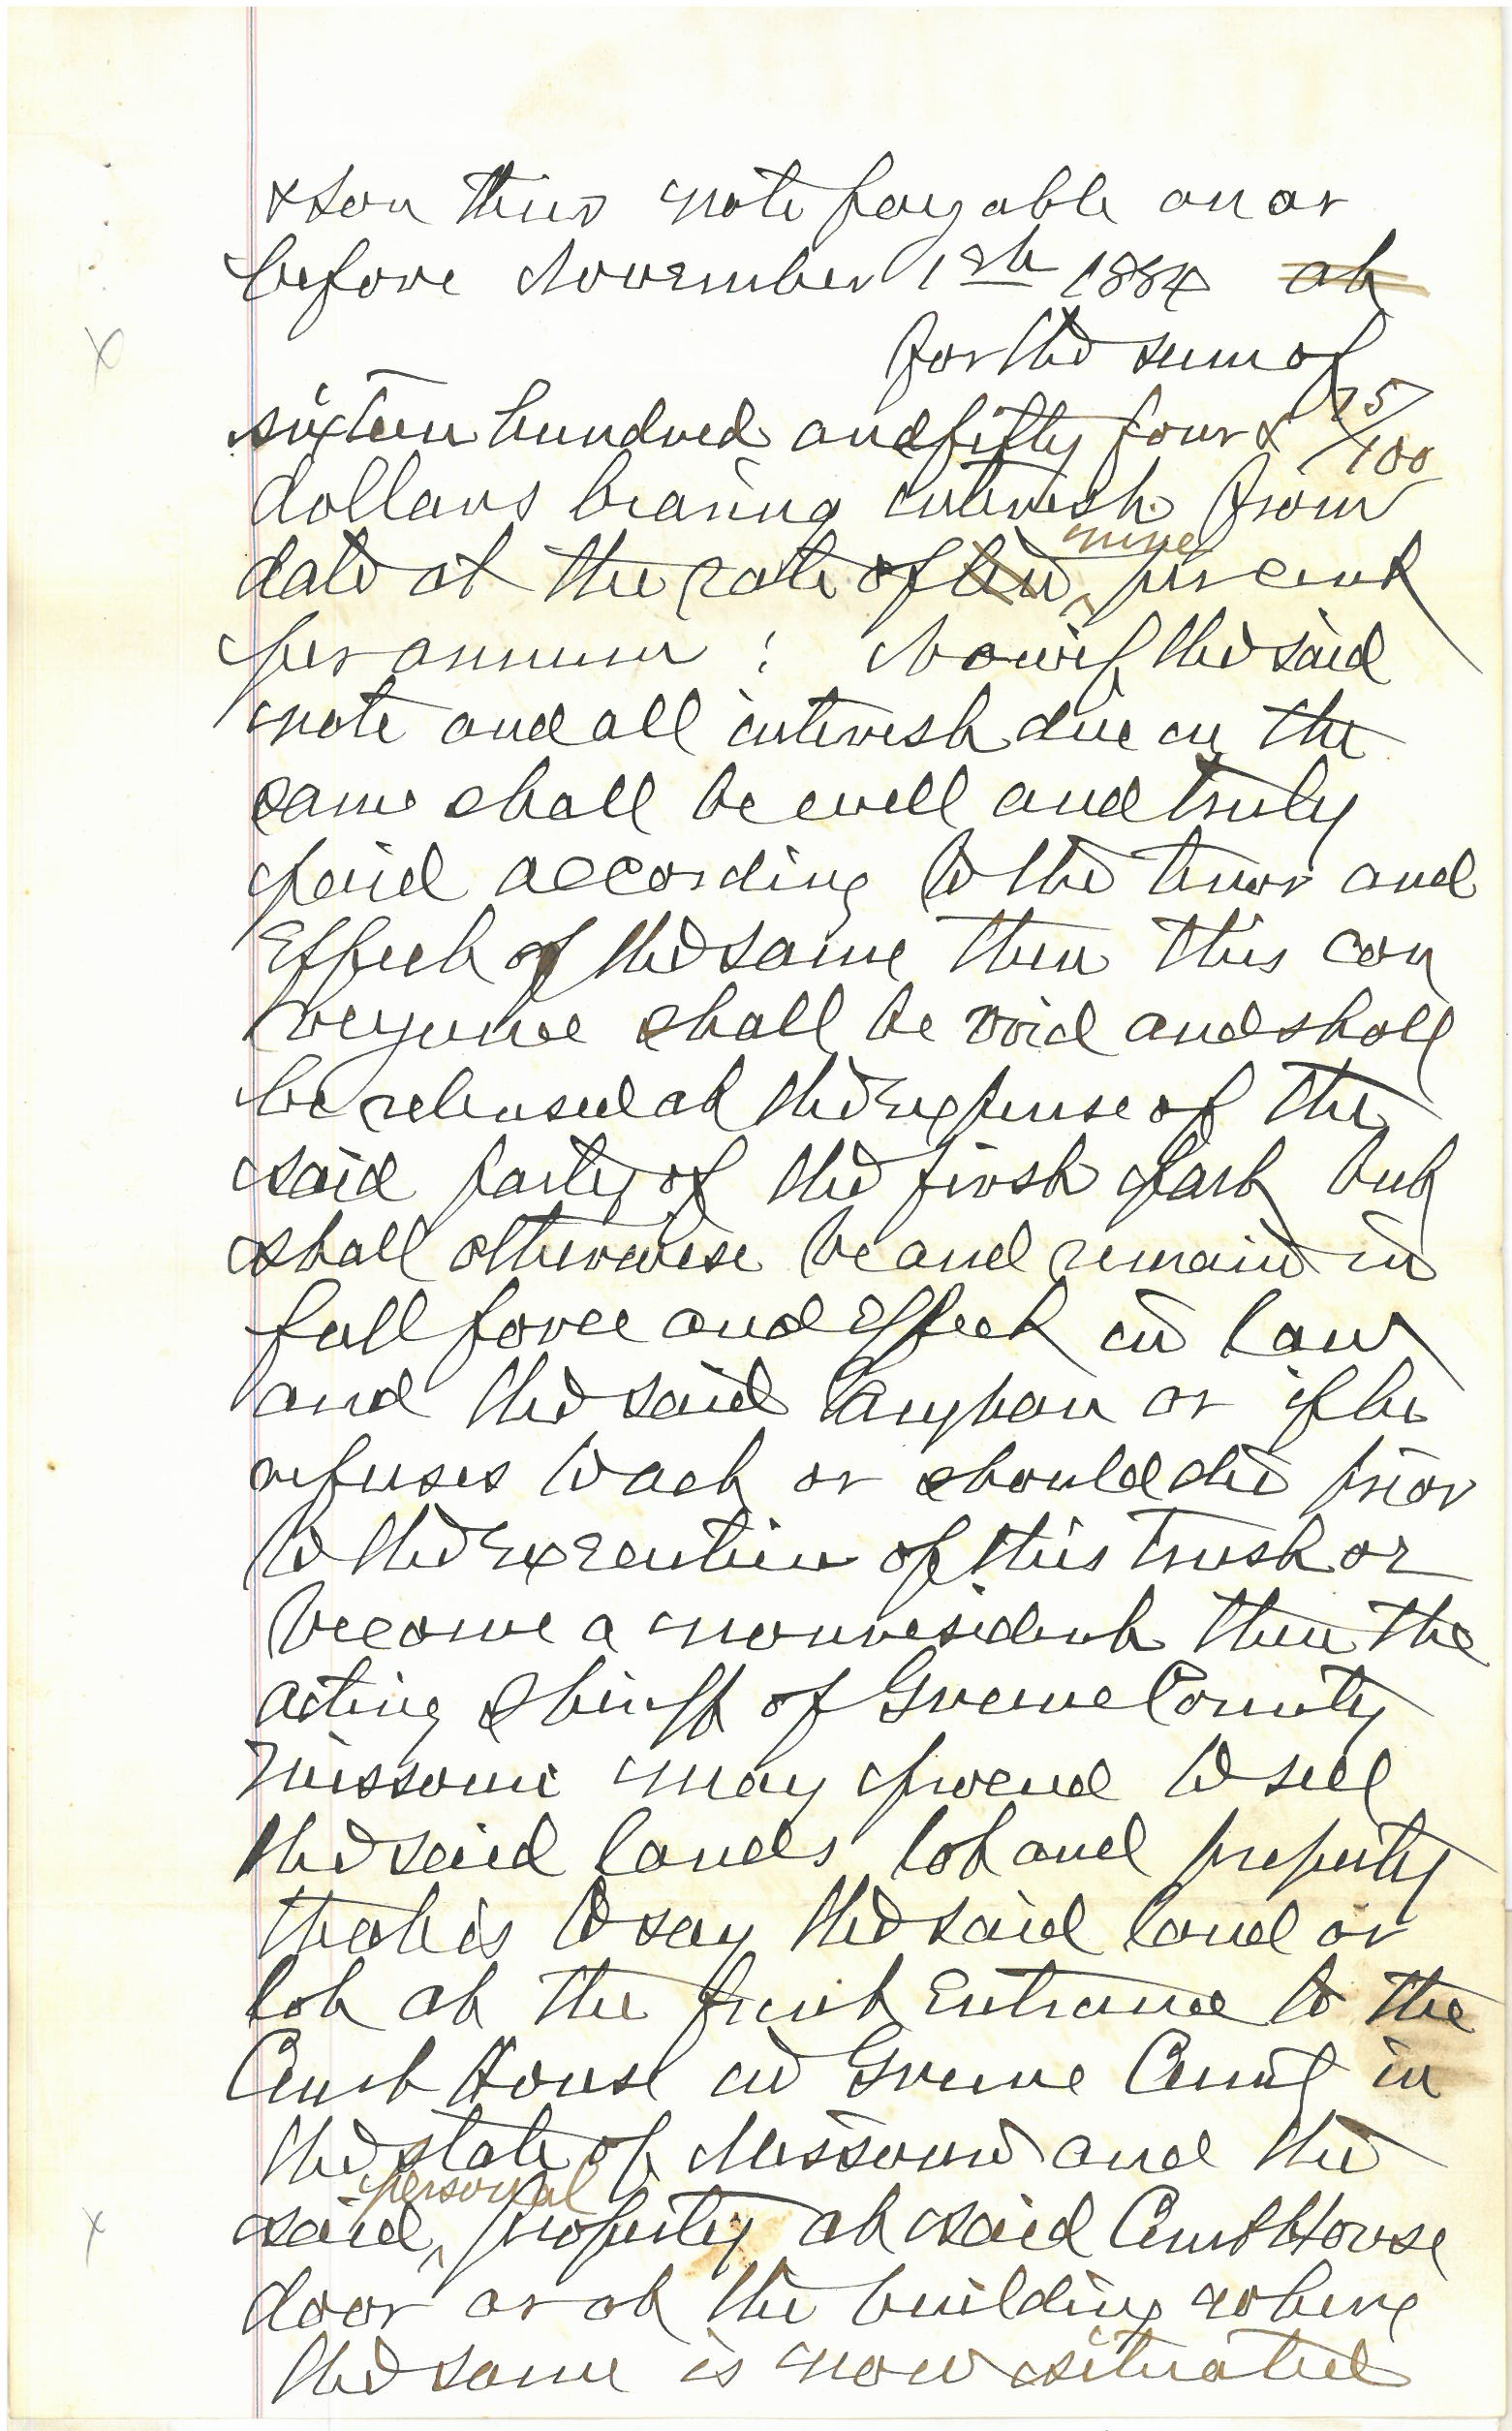 & Son their note payable on or
before November 1st 1884 at
for the sum of
sixteen hundred and fifty four & 75/100
dollars bearing interest from
date at the rate of ten nine per cent
per annum : Now if the said
note and all interest due on the
same shall be well and truly
paid according to the tenor and
Effect of the same then this con
veyance shall be void and shall
be released at the expense of the
said party of the first part but
shall otherwise be and remain in
full force and Effect in law
and the said or if he
refuses to act or should die prior
to the execution of this trust or
become a nonresident then the
acting Sheriff of Greene County
Missouri may proceed to sell
the said lands lot and property
that is to say the said land or
lot at the front Entrance to the
Court House in Greene County in
the state of Missouri and the
said personal property at said Court House
door or at the building where
the same is now situated